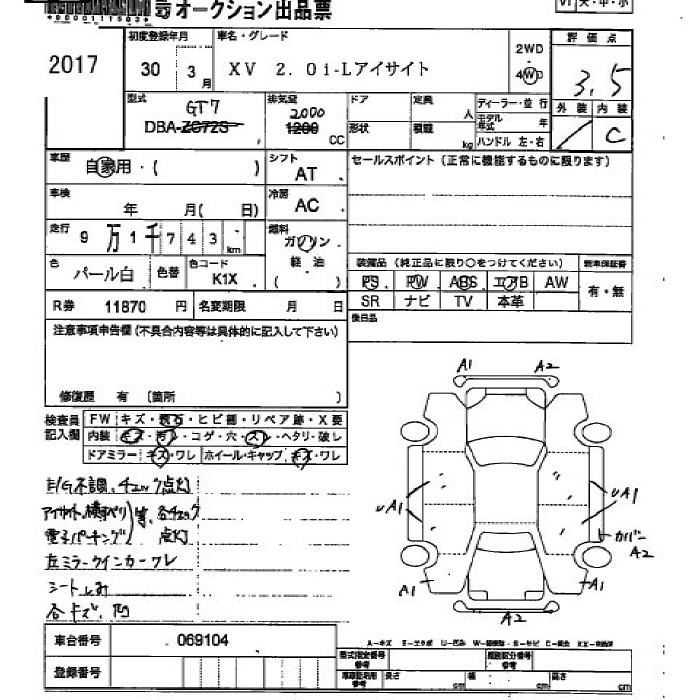 オークション出品票
*0000111503*
V1 大・中・小
2017
初度登録年月
30 3月
車名・グレード
XV 2.0i-Lアイサイト
2WD
4WD
評価点
3.5
外装 内装
C
型式
GT7
DBA-ZC72S
排気量
2000
1200
CC
ドア
形状
定員
人
積載
kg
ディーラー・並行
モデル年式 年
ハンドル 左・右
車歴
自家用・( )
シフト
AT
セールスポイント (正常に機能するものに限ります)
車検
年 月( 日)
冷房
AC
走行
9万1千743km
燃料
ガソリン
軽油
( )
色
パール白
色替
色コード
K1X
装備品 (純正品に限り○をつけてください)
PS PW ABS エアB AW
SR ナビ TV 本革
新車保証書
有・無
R券 11870円
名変期限 月 日
後日品
注意事項申告欄 (不具合内容等は具体的に記入して下さい)
修復歴 有 〔箇所 〕
検査員記入欄
FW キズ・飛石・ヒビ割・リペア跡・X要
内装 キズ・汚レ・コゲ・穴・スレ・ヘタリ・破レ
ドアミラー キズ・ワレ ホイール・キャップ キズ・ワレ
E/G不調、チェック点灯
アイサイト、横すべり
電子パーキング
等、各チェック点灯
左ミラーウインカーワレ
シートしみ
各キズ、凹
A1 A2
UA1 UA1
カバー A2
A1 A1
A2
車台番号 069104
登録番号
A-キズ E-エクボ U-凹み
型式指定番号 参考
類別区分番号 参考
長さ cm 幅 cm 高さ cm